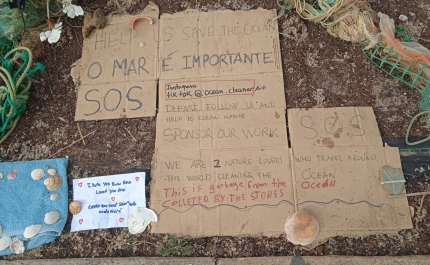 HELP
US SAVE THE OCEAN
O MAR É IMPORTANTE
SOS
Instagram
tik tok @ocean.cleaner
PLEASE FOLLOW US AND
HELP TO CLEAN NATURE
SPONSOR OUR WORK
WE ARE 2 NATURE LOVERS
THE WORLD CLEANING THE
This is garbage from the
COLLETED BY THE STONES
S.O.S
WHO TRAVEL AROUND
OCEAN
OCEAN
I hate you
Loved you